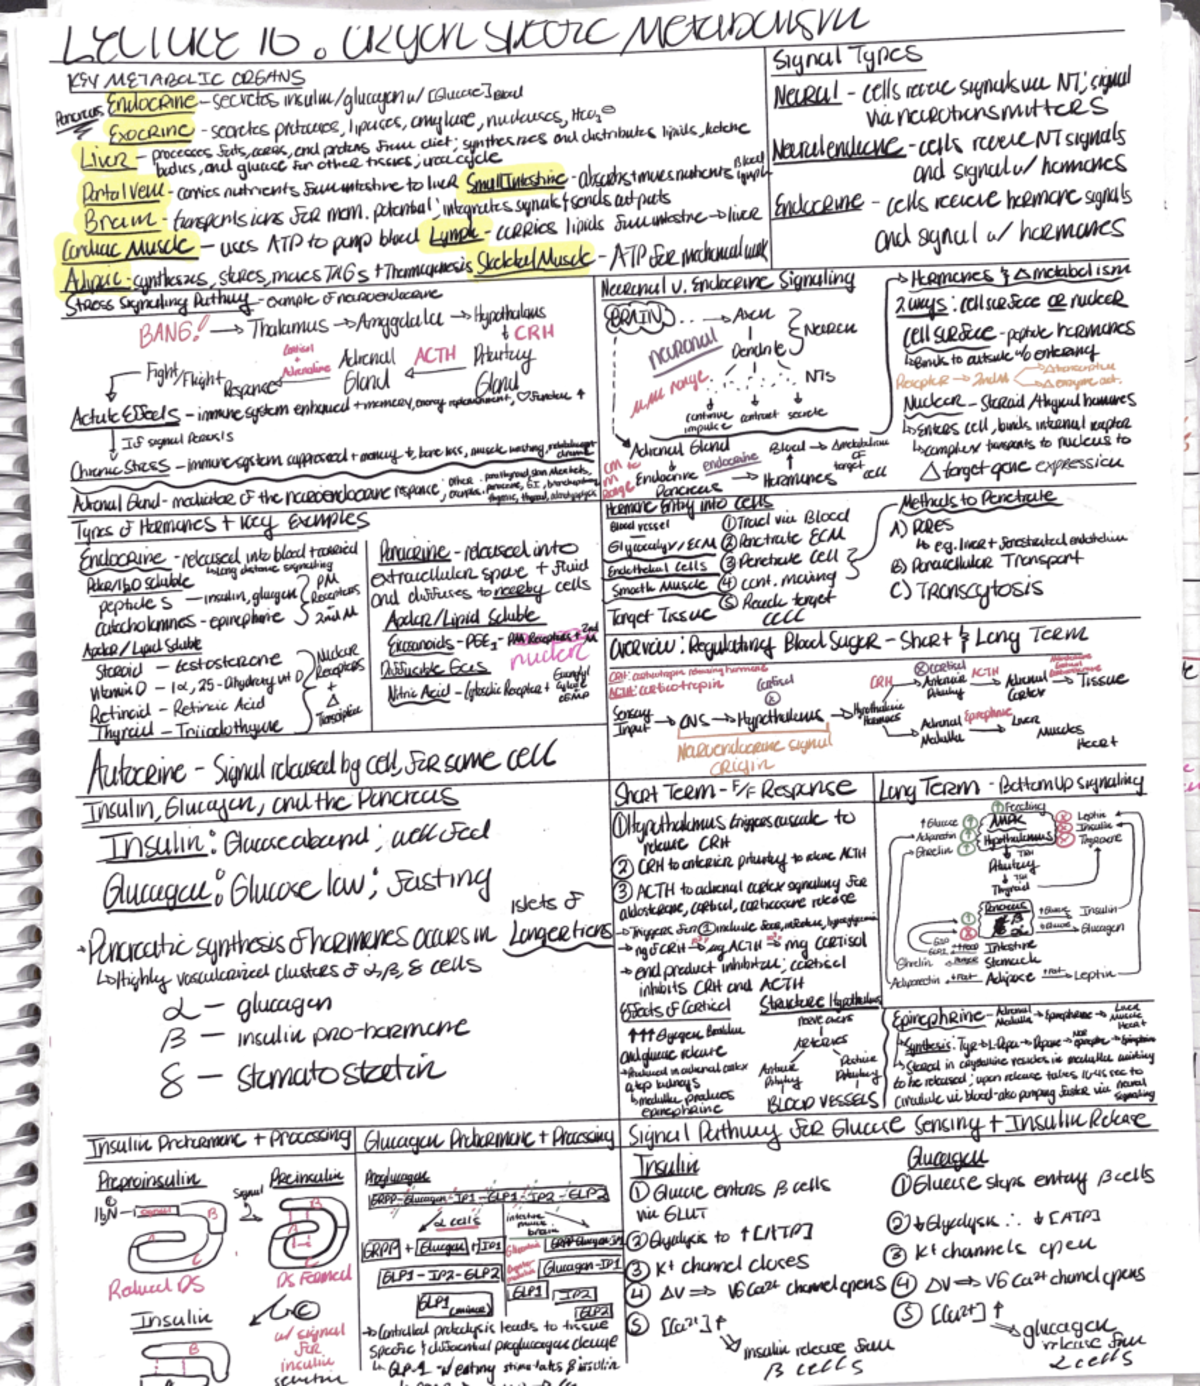 LECTURE 16: Organ Specific Metabolism
KEY METABOLIC ORGANS
Pancreas Endocrine - secretes insulin/glucagon w/ [Glucose] Blood
Exocrine - secretes proteases, lipases, amylase, nucleases, HCO3⊖
Liver - processes fats, carbs, and proteins from diet; synthesizes and distributes lipids, ketone
bodies, and glucose for other tissues; urea cycle
Portal Vein - carries nutrients from intestine to liver Small Intestine - absorbs + moves nutrients blood lymph
Brain - transports ions for mem. potential; integrates signals & sends outputs
Cardiac Muscle - uses ATP to pump blood Lymph - carries lipids from intestine → liver
Adipose - synthesizes, stores, moves TAGs + Thermogenesis Skeletal Muscle - ATP for mechanical work
Signal Types
Neural - cells receive signals via NT; signal
via neurotransmitters
Neuroendocrine - cells receive NT signals
and signal w/ hormones
Endocrine - cells receive hormone signals
and signal w/ hormones
Stress Signaling Pathway - example of neuroendocrine
BANG! → Thalamus → Amygdala → Hypothalamus
↓ CRH
Fight/Flight Response ← Cortisol + Adrenaline Adrenal Gland ← ACTH Pituitary Gland
Actute Effects - immune system enhanced + memory, energy replenishment, ♡ function ↑
↓ If signal persists
Chronic Stress - immune system suppressed + memory ↓, bone loss, muscle wasting,
Adrenal Gland - mediator of the neuroendocrine response;
Neuronal v. Endocrine Signaling
BRAIN ... → Axon
Dendrite
Neuron
neuronal
NTs
μM range
continue impulse contract secrete
Adrenal Gland Blood → Δ metabolism of target cell
Endocrine endocrine
Pancreas → Hormones
→ Hormones & Δ metabolism
2 ways: cell surface OR nuclear
Cell Surface - peptide hormones
↳ Binds to outside w/o entering
Receptor → 2nd M → Δ transcription
Δ enzyme act.
Nuclear - Steroid/thyroid hormones
↳ Enters cell, binds internal receptor
↳ complex transports to nucleus to
Δ target gene expression
Types of Hormones + Key Examples
Endocrine - released into blood + carried
↳ long distance signaling
Polar/H2O soluble
peptides - insulin, glucagon
catecholamines - epinephrine
PM Receptors 2nd M
Apolar/Lipid Soluble
Steroid - testosterone
Vitamin D - 1α, 25-dihydroxy vit D
Retinoid - Retinoic Acid
Thyroid - Triiodothyronine
Nuclear Receptors + Δ Transcription
Paracrine - released into
extracellular space + fluid
and diffuses to nearby cells
Apolar/Lipid Soluble
Eicosanoids - PGE2 -
nuclear
Diffusible Gases
Nitric Acid - Cytosolic Receptor + Guanylyl cyclase cGMP
Autocrine - Signal released by cell, for same cell
Hormone Entry into Cells
Blood Vessel ① Travel via Blood
Glycocalyx/ECM ② Penetrate ECM
Endothelial Cells ③ Penetrate Cell
Smooth Muscle ④ cont. moving
Target Tissue ⑤ Reach target cell
Methods to Penetrate
A) PORES
↳ e.g. liver + fenestrated endothelium
B) Paracellular Transport
C) Transcytosis
Overview: Regulating Blood Sugar - Short & Long Term
CRH: corticotropin releasing hormone
ACTH: corticotropin
Sensory Input → CNS → Hypothalamus → Hypothalamic Hormones
Cortisol
CRH → Anterior Pituitary ACTH → Adrenal Cortex → Tissue
cortisol
Adrenal Medulla Epinephrine → Liver
Muscles
Heart
Neuroendocrine signal
origin
Insulin, Glucagon, and the Pancreas
Insulin: Glucose abound; well fed
Glucagon: Glucose low; fasting
→ Pancreatic synthesis of hormones occurs in Islets of Langerhans
↳ Highly vascularized clusters of α, β, δ cells
α - glucagon
β - insulin pro-hormone
δ - stomatostatin
Short Term - F/F Response
① Hypothalamus triggers cascade to
release CRH
② CRH to anterior pituitary to release ACTH
③ ACTH to adrenal cortex signaling for
aldosterone, cortisol, corticosterone release
→ Triggers for ① include fear, infection, hypoglycemia
→ ng of CRH → μg ACTH → mg cortisol
→ end product inhibition; cortisol
inhibits CRH and ACTH
Effects of Cortisol
↑↑↑ Glycogen Breakdown
and glucose release
→ Produced in adrenal cortex
atop kidneys
↳ medulla produces
epinephrine
Structure Hypothalamus
nerve axons
ARTERIES
Anterior Pituitary Posterior Pituitary
BLOOD VESSELS
Long Term - Bottom Up signaling
↑ Feeding
↑ Glucose AMPK Leptin
Adiponectin Hypothalamus Insulin
Ghrelin ↓ TRH Thyroxine
Pituitary
↓ TSH
Thyroid
Pancreas ↑ Glucose → Insulin
β
α ↓ Glucose → Glucagon
GIP
GLP1 Intestine
Ghrelin Stomach
Adiponectin Adipose → Leptin
Epinephrine - Adrenal Medulla → Epinephrine → Liver Muscle Heart
↳ Synthesis: Tyr → L-Dopa → Dopamine → Nor epinephrine → Epinephrine
↳ stored in crystalline vesicles in medulla waiting
to be released; upon release takes 10-15 sec to
circulate via blood - also pumping faster via neural signaling
Insulin Prohormone + Processing
Preproinsulin Proinsulin
H3N Signal
A B C
Reduced DS DS Formed
Insulin
w/ signal
for
insulin
secretion
Glucagon Prohormone + Processing
Proglucagon
GRPP-Glucagon-IP1-GLP1-IP2-GLP2
α cells
GRPP + Glucagon + IP1
GLP1-IP2-GLP2
GLP1 (minor)
intestine
brain
GRPP-Glucagon-IP1
Glucagon-IP1
GLP1 IP2
GLP2
→ Controlled proteolysis leads to tissue
specific & differential proglucagon cleavage
↳ GLP-1 - w/ eating stimulates β insulin
Signal Pathway for Glucose Sensing + Insulin Release
Insulin
① Glucose enters β cells
via GLUT
② Glycolysis to ↑ [ATP]
③ K+ channel closes
④ ΔV ⇒ VG Ca2+ channel opens
⑤ [Ca2+] ↑
↘ insulin release from
β cells
Glucagon
① Glucose stops entry β cells
② ↓ Glycolysis ∴ ↓ [ATP]
③ K+ channels open
④ ΔV ⇒ VG Ca2+ channel opens
⑤ [Ca2+] ↑
↘ glucagon
release from
α cells